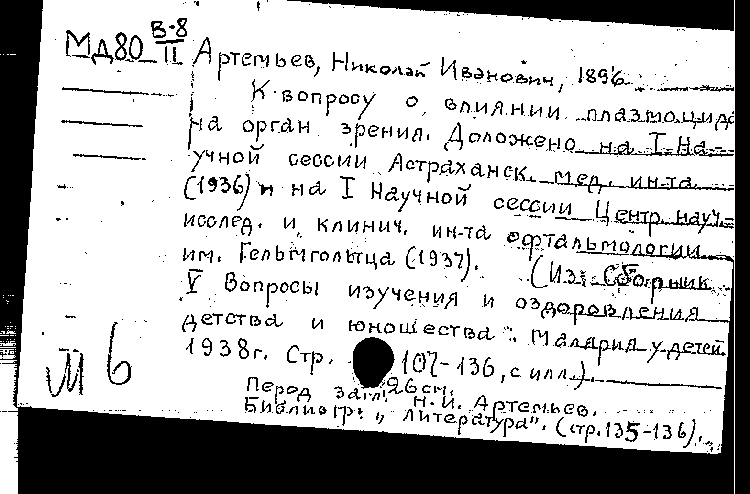 Мд80 В-8
II
Артемьев, Николай Иванович, 1896
К вопросу о влиянии плазмоцида
на орган зрения. Доложено на I На-
учной сессии Астраханск. мед. ин-та
(1936) и на I Научной сессии Центр. науч.-
исслед. и клинич. ин-та офтальмологии
им. Гельмгольтца (1937). (Из: Сборник
V Вопросы изучения и оздоровления
детства и юношества". Малярия у детей.
1938г. Стр. 107-136, с илл.).
26 см.
Перед загл. Н. И. Артемьев.
Библиогр: „Литература". (стр. 135-136).
М 6